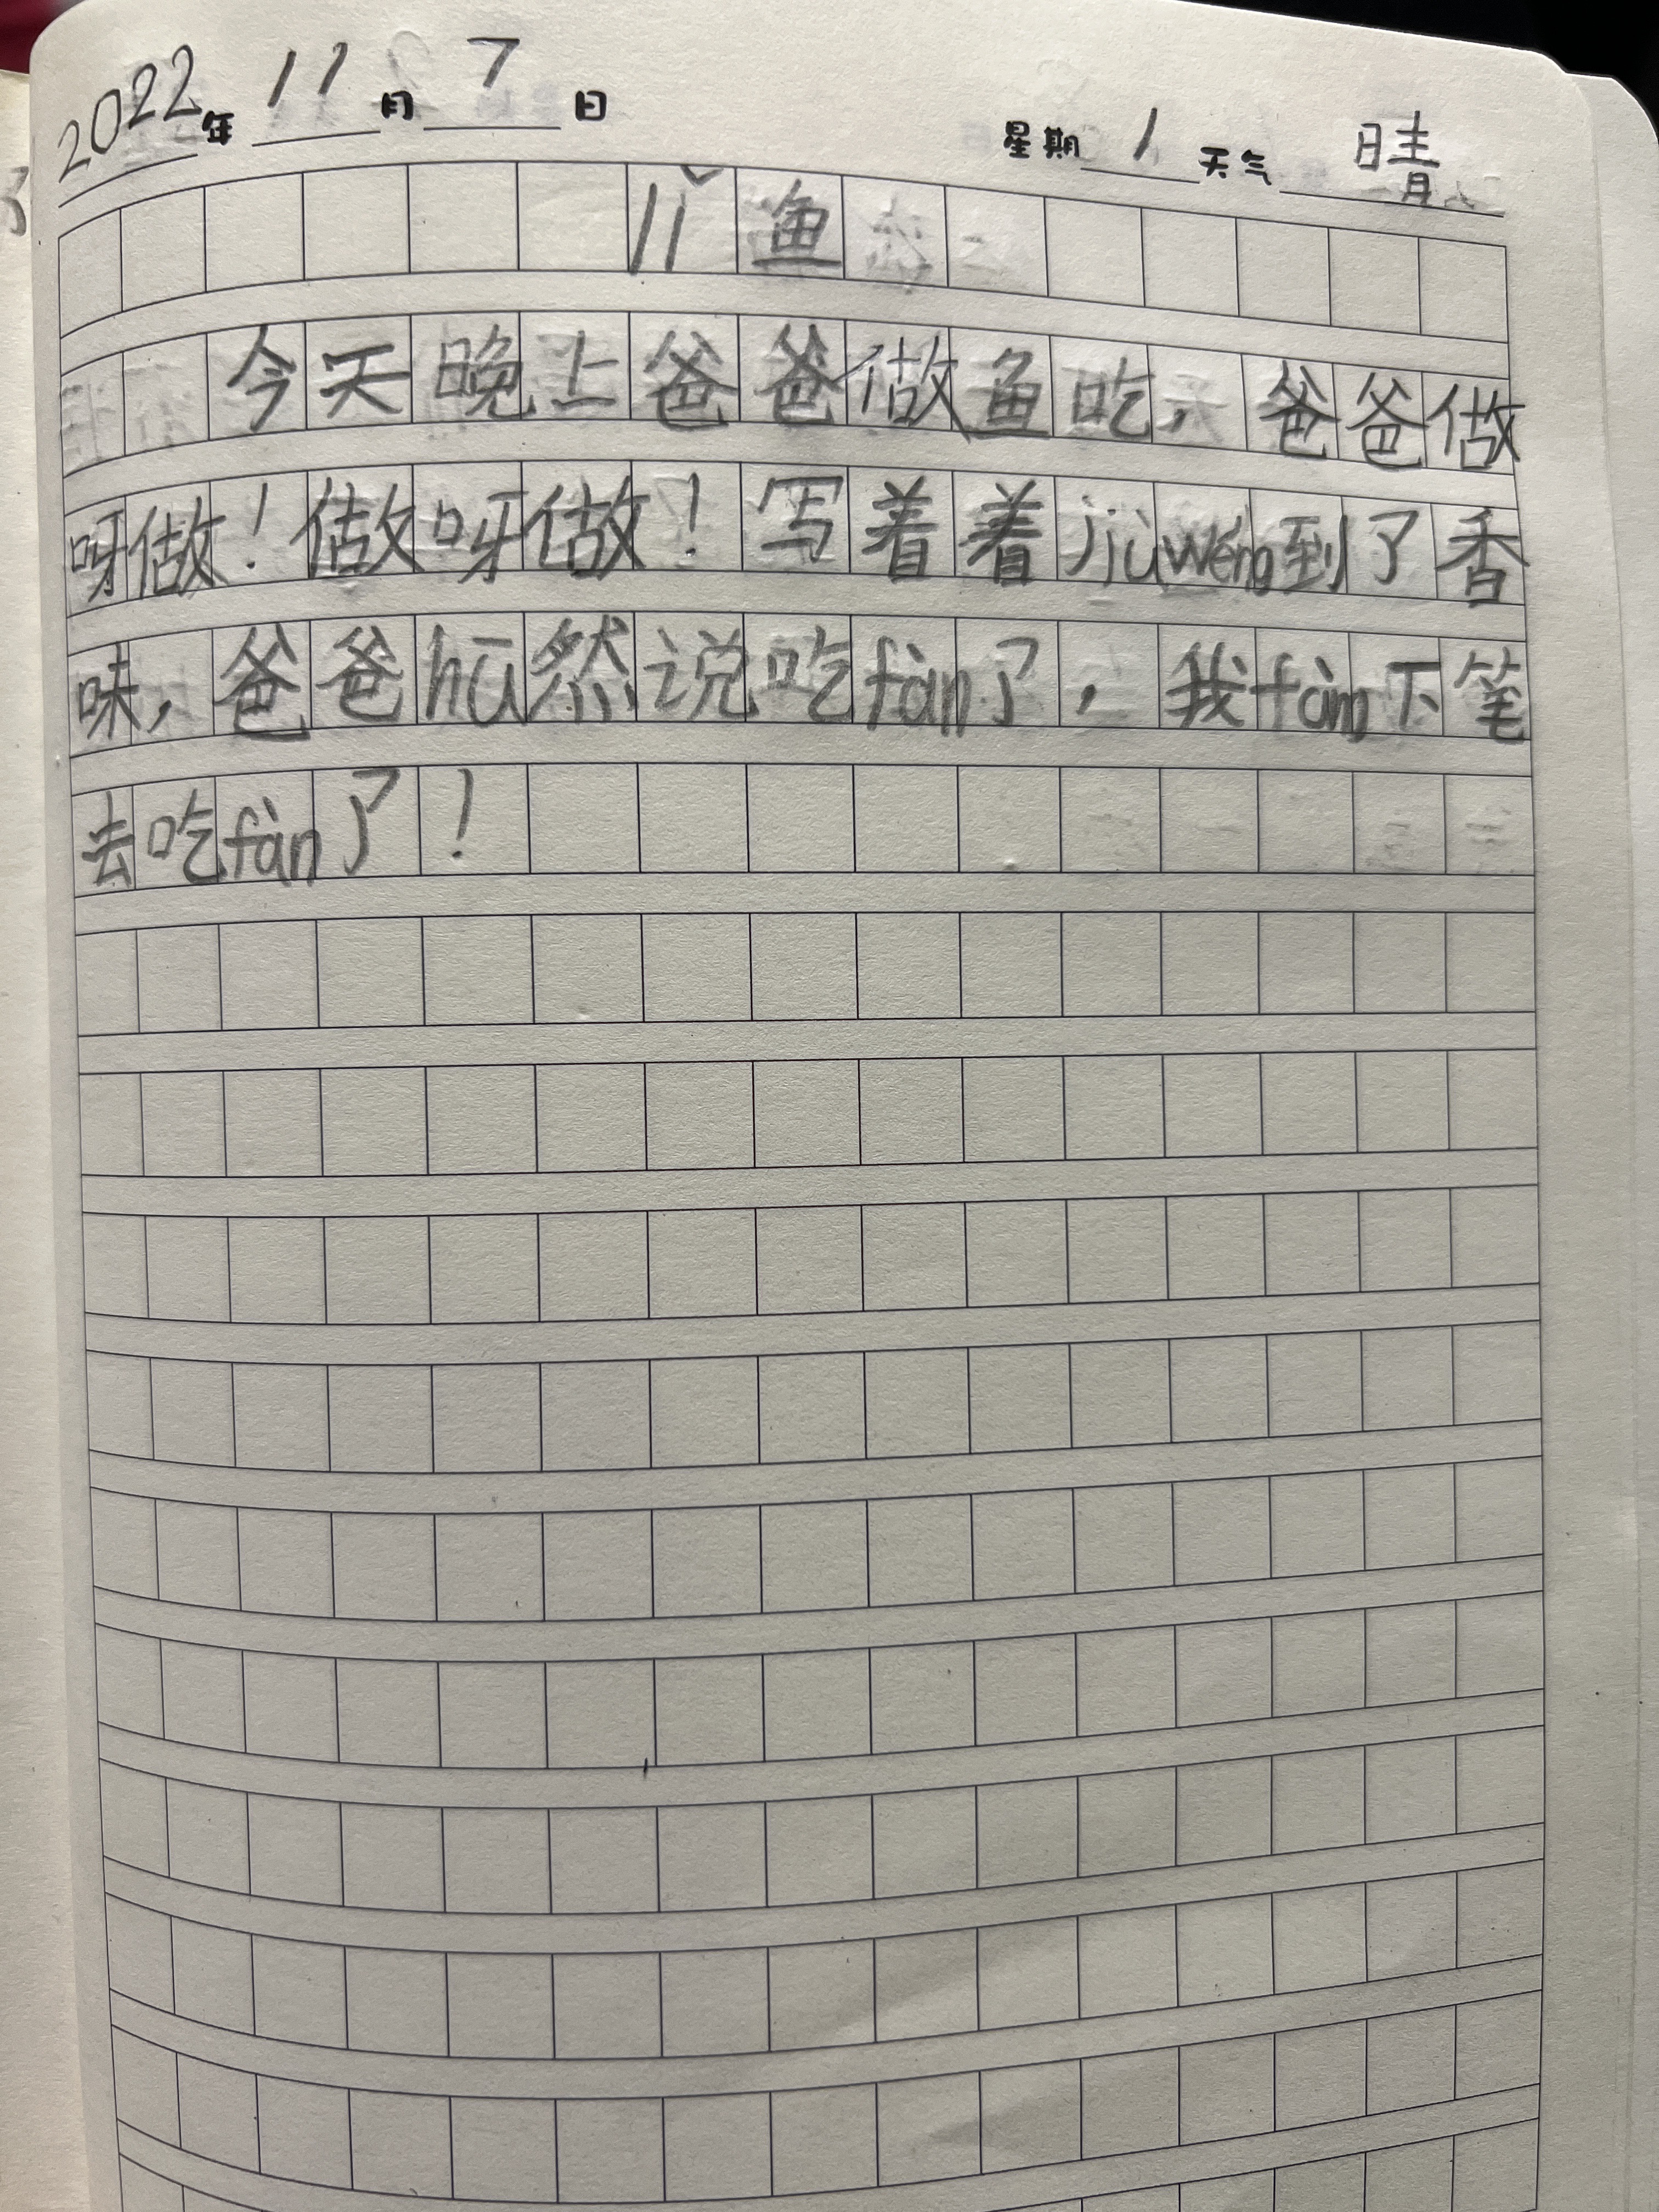 2022年 11月 7日 星期 1 天气 晴
lǐ鱼
今天晚上爸爸做鱼吃，爸爸做
呀做！做呀做！写着着jiùwén到了香
味，爸爸hū然说吃fàn了，我fàn下笔
去吃fàn了！